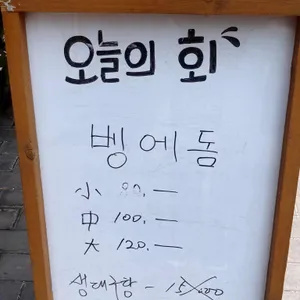 오늘의 회
벵에돔
小 80.—
中 100.—
大 120.—
생대구탕 - 15,000